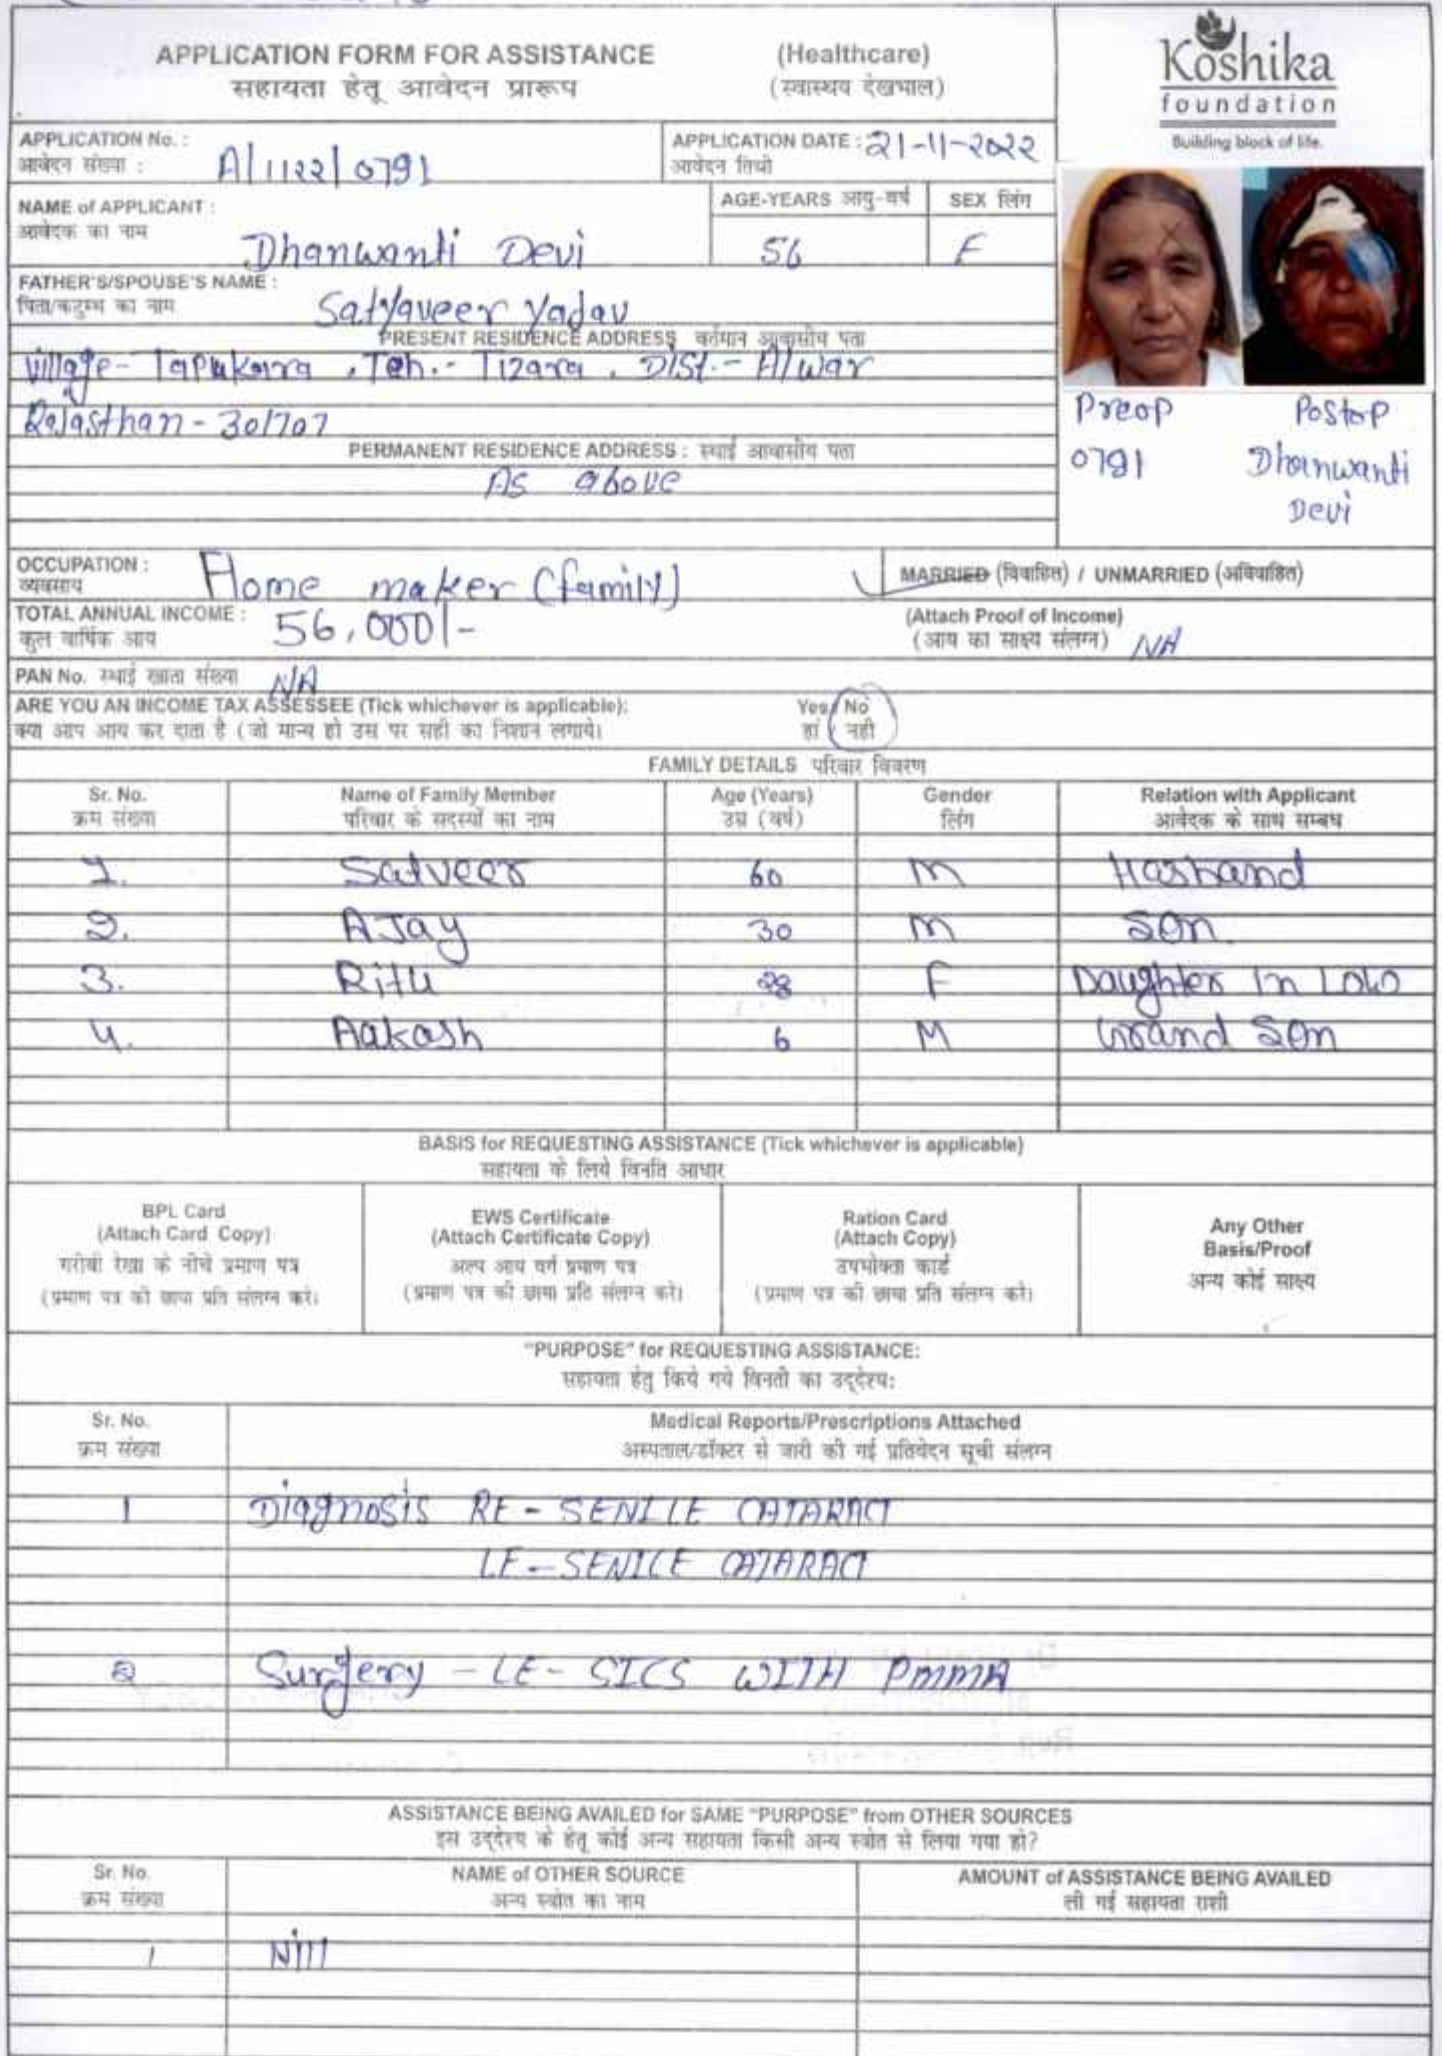 APPLICATION FORM FOR ASSISTANCE (Healthcare)
सहायता हेतू आवेदन प्रारूप (स्वास्थय देखभाल)
Koshika
foundation
Building block of life.
APPLICATION No. : A/1122/0791
आवेदन संख्या :
APPLICATION DATE : 21-11-2022
आवेदन तिथी
NAME of APPLICANT : Dhanwanti Devi
आवेदक का नाम
AGE-YEARS आयु-वर्ष 56
SEX लिंग F
FATHER'S/SPOUSE'S NAME : Satyaveer Yadav
पिता/कटुम्ब का नाम
PRESENT RESIDENCE ADDRESS वर्तमान आवासीय पता
Village- Tapukara, Teh.- Tizara, DISt.- Alwar
Rajasthan - 301707
PERMANENT RESIDENCE ADDRESS : स्थाई आवासीय पता
As above
Preop Postop
0791 Dhanwanti
Devi
OCCUPATION : Home maker (family)
व्यवसाय
MARRIED (विवाहित) / UNMARRIED (अविवाहित)
TOTAL ANNUAL INCOME : 56,000/-
कुल वार्षिक आय
(Attach Proof of Income)
(आय का साक्ष्य संलग्न) NA
PAN No. स्थाई खाता संख्या NA
ARE YOU AN INCOME TAX ASSESSEE (Tick whichever is applicable): Yes/ No
क्या आप आय कर दाता है (जो मान्य हो उस पर सही का निशान लगाये। हां / नही
FAMILY DETAILS परिवार विवरण
Sr. No. Name of Family Member Age (Years) Gender Relation with Applicant
क्रम संख्या परिवार के सदस्यों का नाम उम्र (वर्ष) लिंग आवेदक के साथ सम्बध
1. Satveer 60 M Hasband
2. AJay 30 M Son.
3. Ritu 28 F Daughter In Law
4. Aakash 6 M Grand Son
BASIS for REQUESTING ASSISTANCE (Tick whichever is applicable)
सहायता के लिये विनति आधार
BPL Card
(Attach Card Copy)
गरीबी रेखा के नीचे प्रमाण पत्र
(प्रमाण पत्र की छाया प्रति संलग्न करे।
EWS Certificate
(Attach Certificate Copy)
अल्प आय वर्ग प्रमाण पत्र
(प्रमाण पत्र की छाया प्रति संलग्न करे।
Ration Card
(Attach Copy)
उपभोक्ता कार्ड
(प्रमाण पत्र की छाया प्रति संलग्न करे।
Any Other
Basis/Proof
अन्य कोई साक्ष्य
"PURPOSE" for REQUESTING ASSISTANCE:
सहायता हेतु किये गये विनती का उद्देश्य:
Sr. No. Medical Reports/Prescriptions Attached
क्रम संख्या अस्पताल/डॉक्टर से जारी की गई प्रतिवेदन सूची संलग्न
1 Diagnosis RE - SENILE CATARACT
LE - SENILE CATARACT
2 Surgery - LE - SICS WITH PMMA
ASSISTANCE BEING AVAILED for SAME "PURPOSE" from OTHER SOURCES
इस उद्देश्य के हेतू कोई अन्य सहायता किसी अन्य स्त्रोत से लिया गया हो?
Sr. No. NAME of OTHER SOURCE AMOUNT of ASSISTANCE BEING AVAILED
क्रम संख्या अन्य स्त्रोत का नाम ली गई सहायता राशी
1 Nill